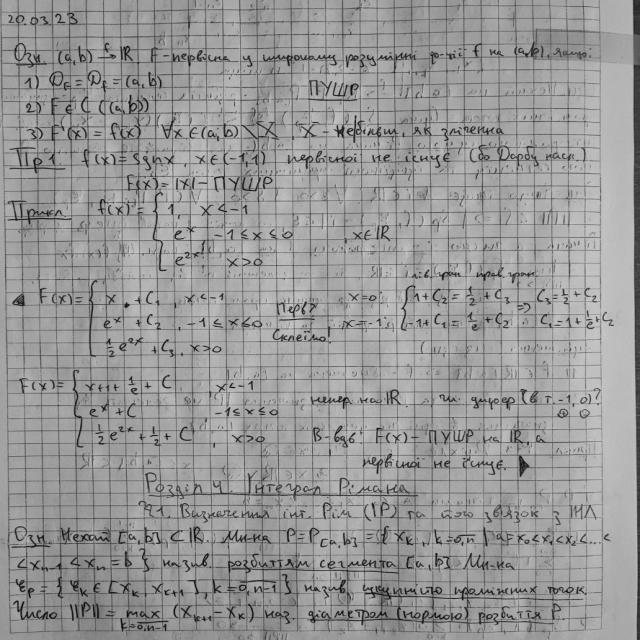 20.03.23
Озн. (a,b) →f ℝ F - первісна у широкому розумінні ф-ції f на (a,b), якщо:
1) D_F = D_f = (a,b)
ПУШР
2) F ∈ C((a,b))
3) F'(x) = f(x) ∀x∈(a,b) \ X, X - не більш, як зліченна
Пр1. f(x) = sgn x, x∈(-1,1) первісної не існує (бо Дарбу насл.)
F(x) = |x| - ПУШР
Прикл. f(x) = { 1, x < -1
e^x, -1 ≤ x ≤ 0, x∈ℝ
e^{2x}, x > 0
лів. гран. прав. гран.
F(x) = { x + C₁, x < -1 x=0: { 1+C₂ = 1/2 + C₃ ⇒ C₃ = 1/2 + C₂
e^x + C₂, -1 ≤ x ≤ 0 Перв? x=-1: -1+C₁ = 1/e + C₂ C₁ = 1 + 1/e + C₂
1/2 e^{2x} + C₃, x > 0 Склеїмо.
F(x) = { x+1+1/e + C, x < -1
e^x + C, -1 ≤ x ≤ 0 непер. на ℝ. чи дифер. (в т. -1, 0)?
1/2 e^{2x} + 1/2 + C, x > 0 В-вдь: F(x) - ПУШР на ℝ, а
первісної не існує.
Розділ 4. Інтеграл Рімана
§1. Визначення інт. Рім. (ІР) та його зв'язок з ІНЛ
Озн. Нехай [a,b] ⊂ ℝ. Мн-на P = P_{[a,b]} = { x_k, k=0,n | a = x₀ < x₁ < x₂ < ... <
< x_{n-1} < x_n = b } назив. розбиттям сегмента [a,b]. Мн-на
ξ_P = { ξ_k ∈ [x_k, x_{k+1}], k=0,n-1 } назив. проміжних точок.
Число ||P|| = max_{k=0,n-1} (x_{k+1} - x_k) наз. діаметром (нормою) розбиття P.